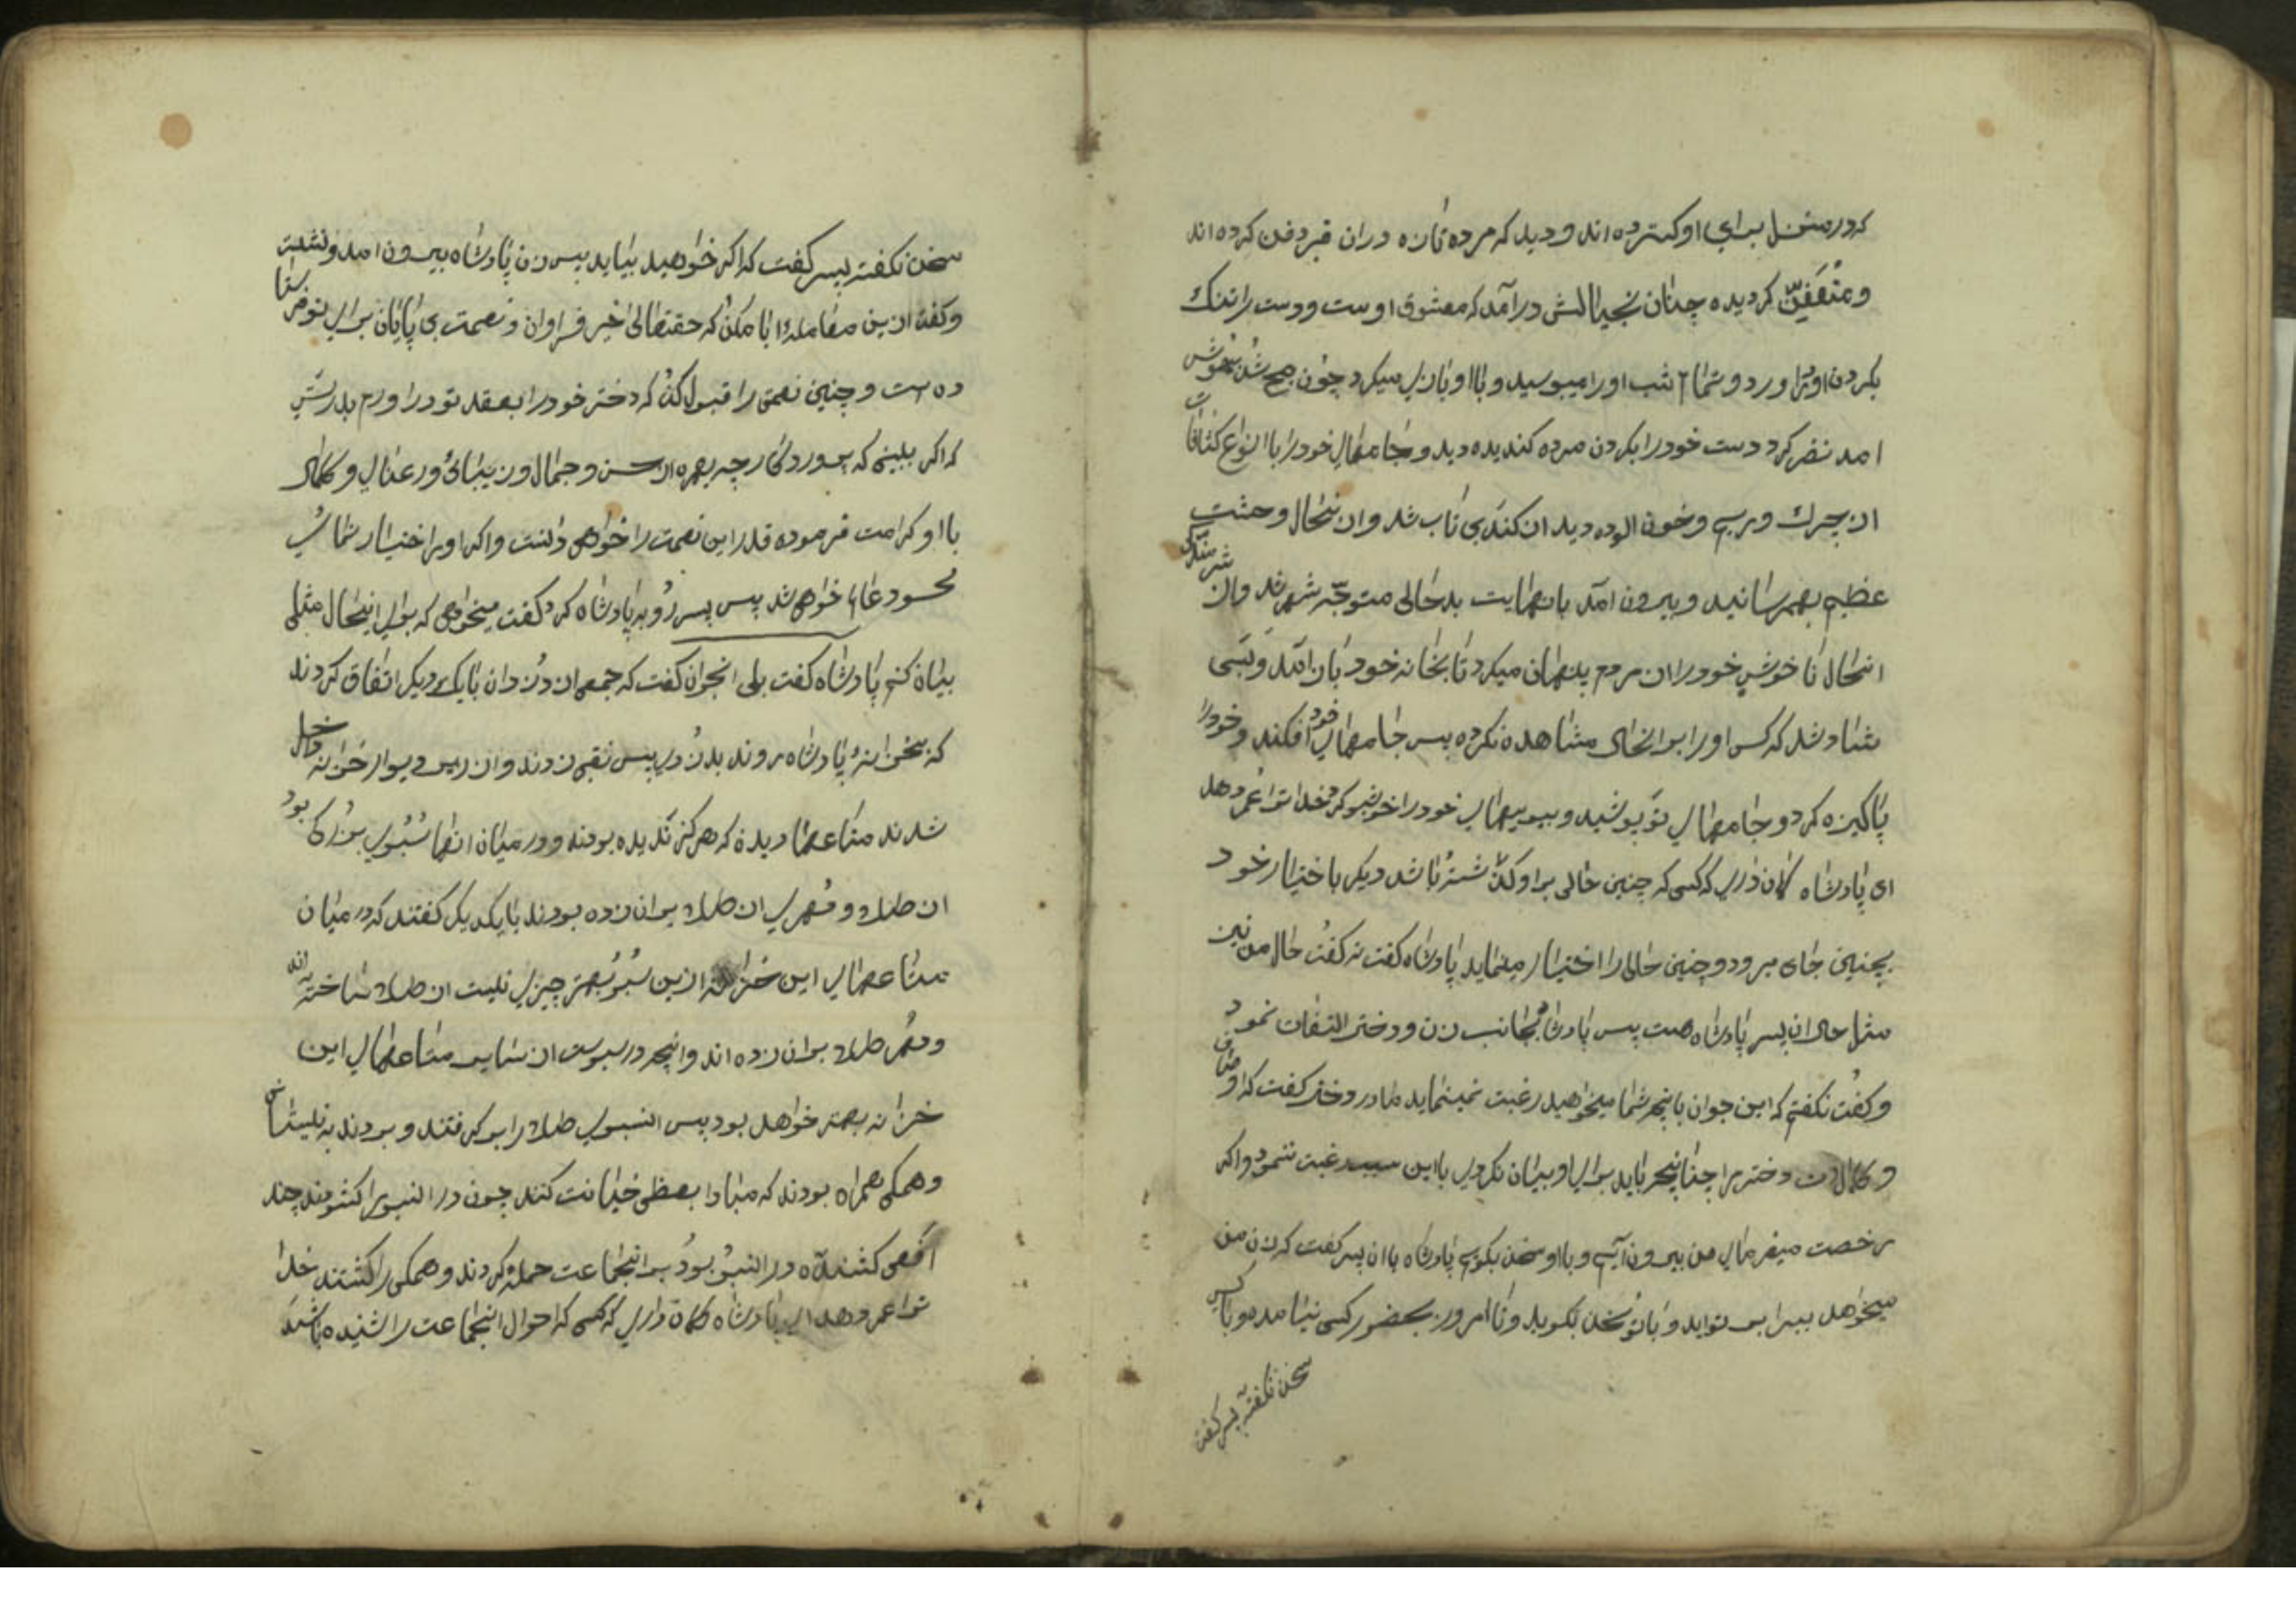 که در منزل برای او کسترده اند و دید که مرده تازه در ان قبر دفن کرده اند
و متعفن کردیده چنان بخیالش درآمد که معشوق اوست و دست را تنک
بکردن او در اورد و تمام شب اورا میبوسید و با او بازی میکرد چون صبح شد بهوش
امد نظر کرد دست خود را بکردن مرده کندیده دید و جامهای خود را با انواع کثافات
از چرک و ریم و خون الوده دید از کند بی تاب شد و از نحال وحشت
عظیم بهم رسانید و بیرون آمد با نهایت بدحالی متوجه شهر شد و از شرمندکی
انحال ناخوش خود را از مردم پنهان میکرد تا بخانه خود باز آمد و بسی
شاد شد که کس اورا بر انحال مشاهده نکرده پس جامهای خود افکند و خود را
پاکیزه کرد و جامهای نو پوشید و ببویهای خود را خوشبو کرد خدا ترا عمر دهد
ای پادشاه کمان داری که کسی که چنین حالی بر او کذشته باشد دیکر باختیار خود
بچنین جای میرود و چنین حالی را اختیار مینماید پادشاه کفت نه کفت حال من نیز
مثل حال ان پسر پادشاه هست پس پادشاه بجانب زن و دختر التفات نمود
و کفت نکفتم که این جوان بانچه شما میخواهید رغبت نمینماید مادر دختر کفت که اوصاف
و کمالات دختر را چنانچه باید برای او بیان نکردی با این سبب رغبت ننمود و اکر
رخصت میفرمائی من بیرون آیم و با او سخن بکویم پادشاه با ان پسر کفت که زن من
میخواهد بیرابر تو اید و با تو سخن بکوید و تا امروز بحضور کسی نیامده و با کسی
سخن نکفته پسر کفت
سخن نکفته پسر کفت که اکر خواهید بیاید پس زن پادشاه بیرون امد و نشست
و کفت ازین معامله ابا مکن که حقتعالی خیر فراوان و نعمت بی پایان برای تو فرستا
ده است و چنین نعمتی را قبول کن که دختر خود را بعقد تو در اورم بدرستی
که اکر ببینی که پروردکار چه بهره از حسن و جمال و زیبائی و رعنائی و کمال
با او کرامت فرموده قدر این نعمت را خواهی دانست و اکر او را اختیار نمائی
محسود عالم خواهی شد پس پسر رو به پادشاه کرد کفت میخواهی که برای اینحال مثلی
بیان کنم پادشاه کفت بلی انجوان کفت که جمعی از دزدان با یک دیکر اتفاق کردند
که بخزانۀ پادشاه روند بدزدی پس نقبی زدند و از زیر دیوار خزانه داخل
شدند متاعها دیدند که هرکز ندیده بودند و در میان انها سبوی بزرکی بود
از طلا و مهری از طلا بران زده بودند با یکدیکر کفتند که در میان
متاعهای این خزانه ازین سبو بهتر چیزی نیست از طلا ساخته اند
و مهر طلا بران زده اند و انچه در سبوست از سایر متاعهای این
خزانه بهتر خواهد بود پس انسبوی طلا را بر کرفتند و بردند به نیستان
و همکی همراه بودند که مبادا بعضی خیانت کنند چون در انسبو را کشودند چند
افعی کشنده در انسبو بود بر انجماعت حمله کردند و همکی را کشتند خدا
ترا عمر دهد ای پادشاه کمان داری که کسی که احوال انجماعت را شنیده باشد